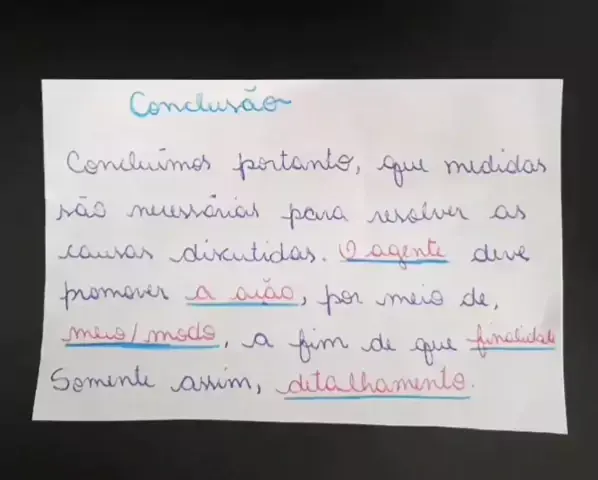 Conclusão
Concluímos portanto, que medidas
são necessárias para resolver as
causas discutidas. O agente deve
promover a ação, por meio de,
meio/modo, a fim de que finalidade
Somente assim, detalhamento.